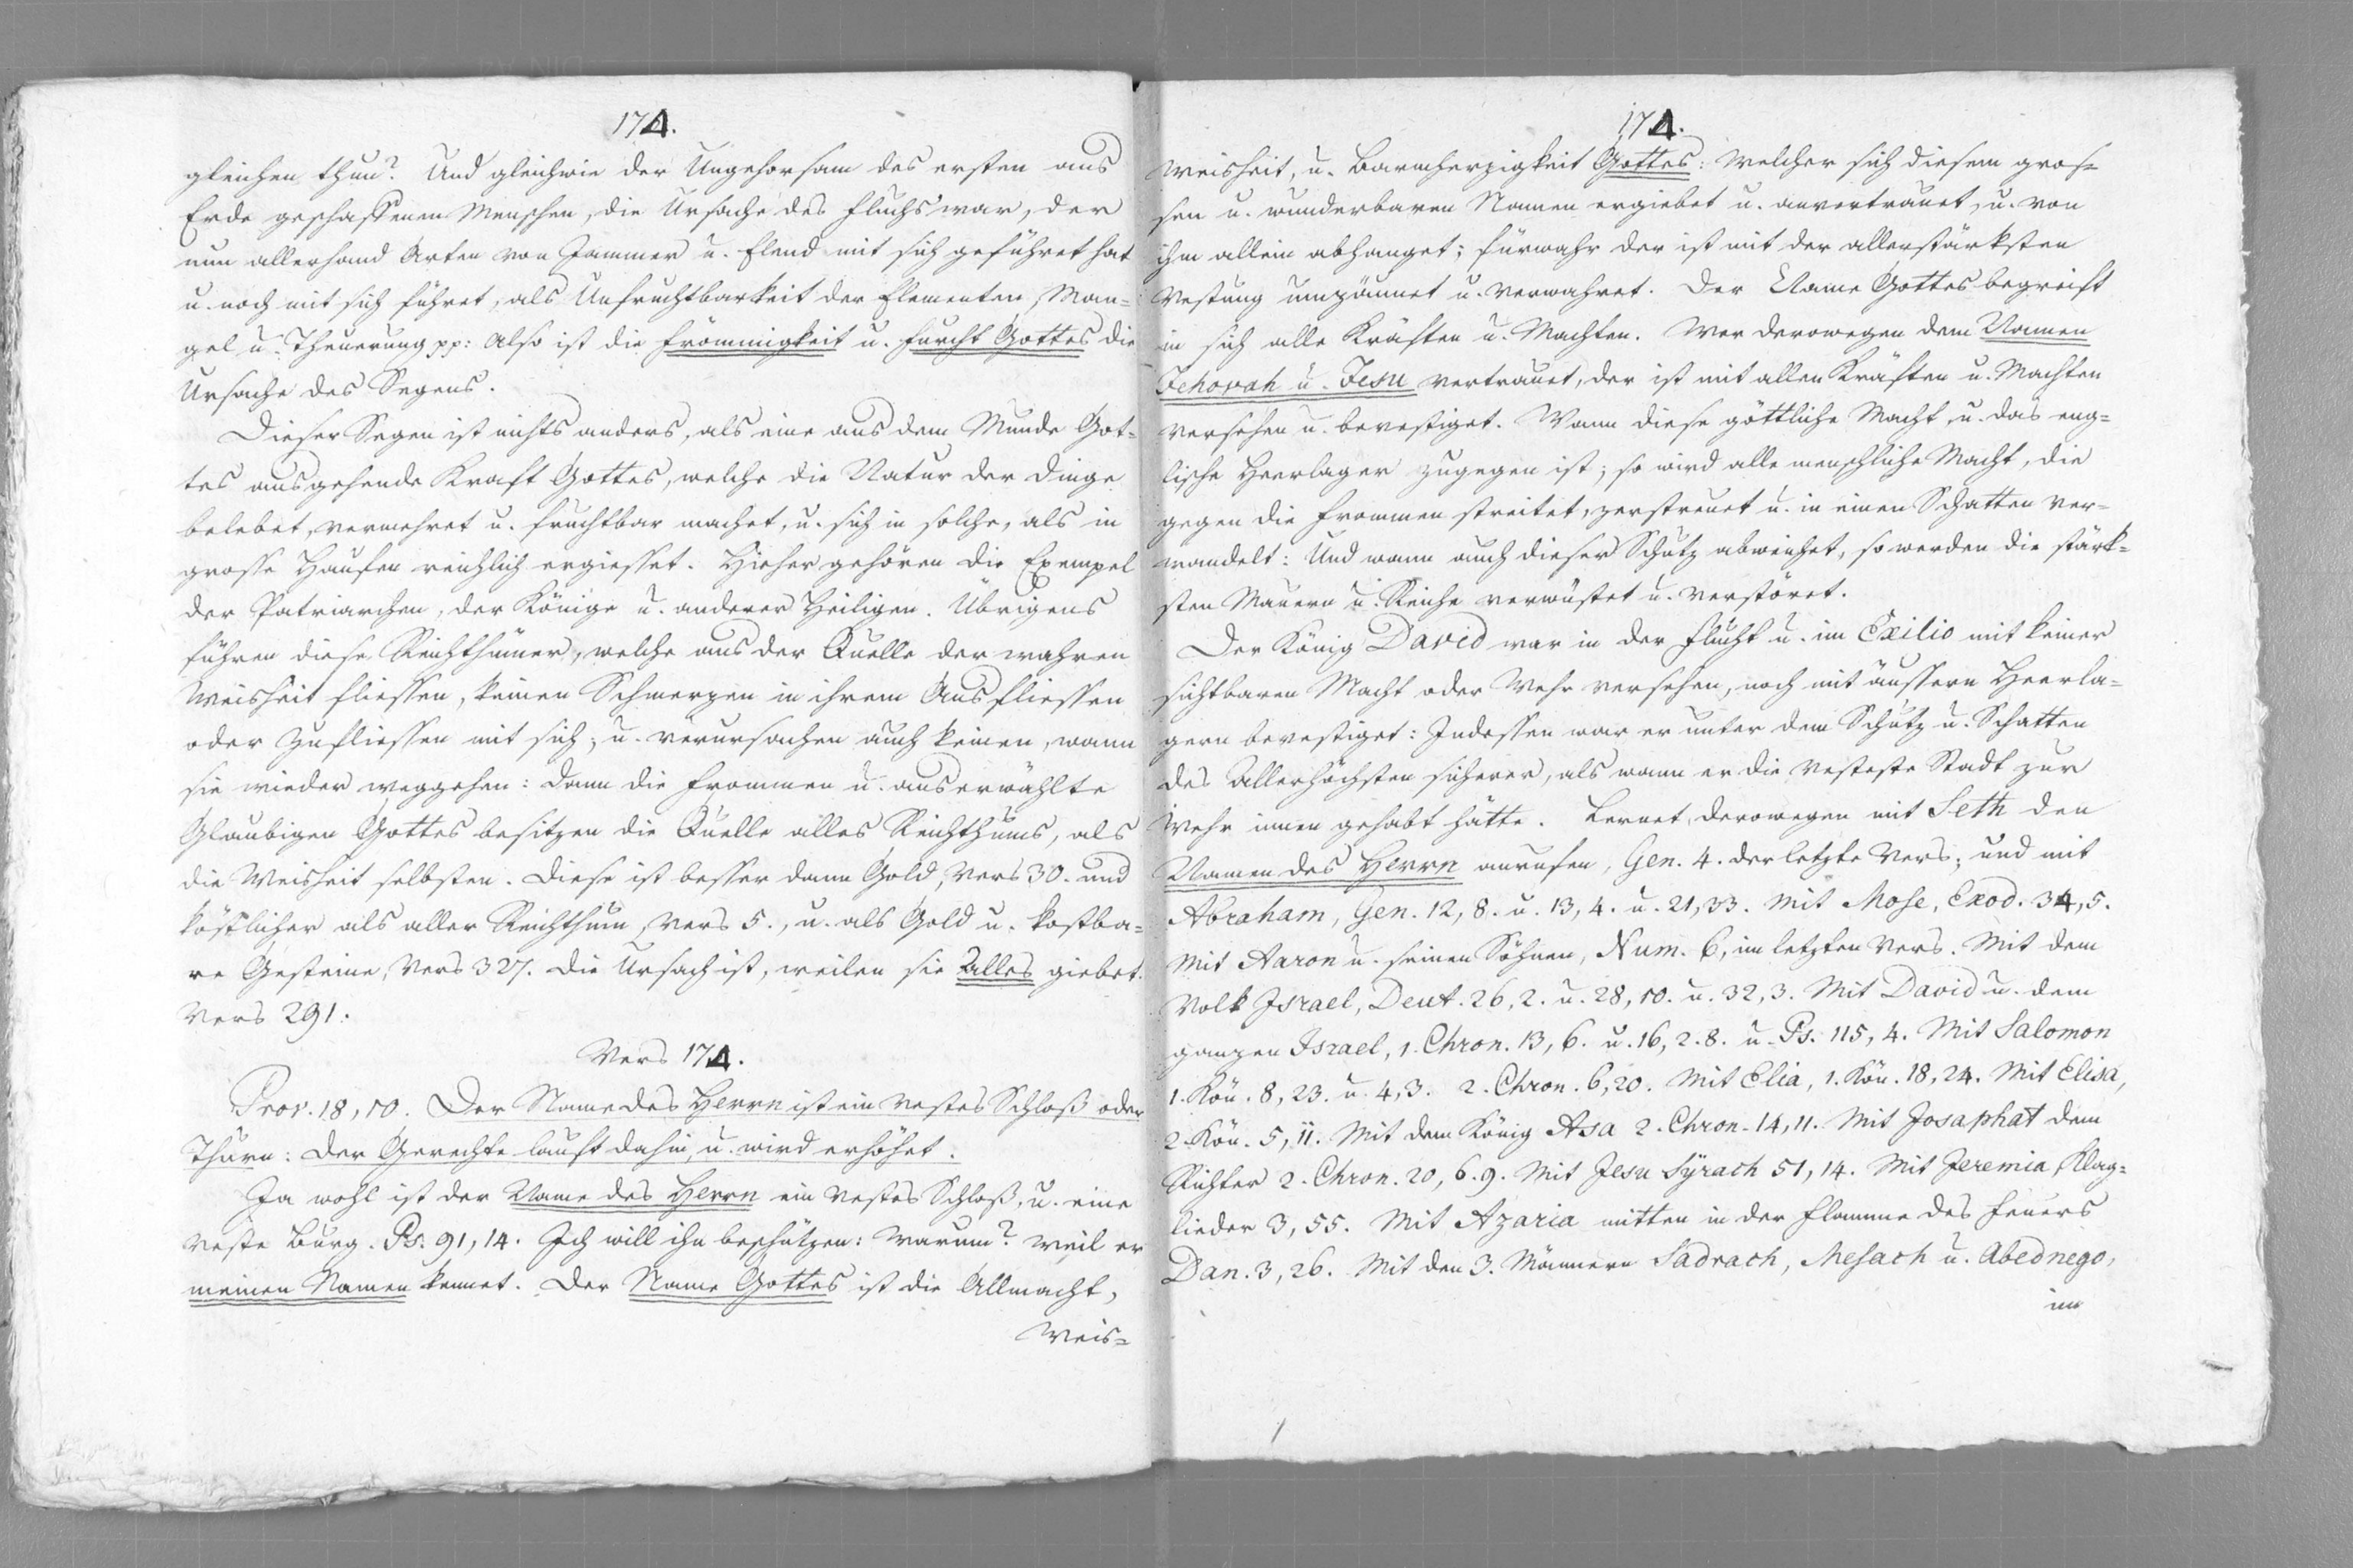 174.
gleichen thun? Und gleichwie der Ungehorsam des ersten aus
Erde geschaffenen Menschen, die Ursache des Fluchs war, der
nun allerhand Arten von Jammer u. Elend mit sich geführet hat
u. noch mit sich führet, als Unfruchtbarkeit der Elementen, Man-
gel u. Theuerung pp: Also ist die Frömmigkeit u. Furcht Gottes die
Ursache des Segens.
Dieser Segen ist nichts anders, als eine aus dem Munde Got-
tes ausgehende Kraft Gottes, welche die Natur der Dinge
belebet, vermehret u. fruchtbar machet, u. sich in solche, als in
grosse Haufen reichlich ergiesset. Hieher gehören die Exempel
der Patriarchen, der Könige u. anderer Heiligen. Übrigens
führen diese Reichthümer, welche aus der Quelle der wahren
Weisheit fliessen, keinen Schmerzen in ihrem Ausfliessen
oder Zufliessen mit sich; u. verursachen auch keinen, wann
sie wieder weggehen: dann die frommen u. auserwählte
Glaubigen Gottes besitzen die Quelle alles Reichthums, als
die Weisheit selbsten. Diese ist besser dann Gold, Vers 30. und
köstlicher als aller Reichthum, Vers 5., u. als Gold u. kostba-
re Gesteine, Vers 327. die Ursach ist, weilen sie Alles giebet.
Vers 291.
Vers 174.
Prov. 18, 10. Der Name des Herrn ist ein vestes Schloß oder
Thurn: der Gerechte lauft dahin, u. wird erhöhet.
Ja wohl ist der Name des Herrn ein vestes Schloß, u. eine
veste Burg. Ps. 91, 14. Ich will ihn beschützen: warum? weil er
meinen Namen kennet. Der Name Gottes ist die Allmacht,
Weis-
174.
Weisheit, u. Barmherzigkeit Gottes: Welcher sich diesem gros-
sen u. wunderbaren Namen ergiebet u. anvertrauet, u. von
ihm allein abhanget; fürwahr der ist mit der allerstärksten
Vestung umzäunet u. verwahret. Der Name Gottes begreift
in sich alle Kräften u. Machten. Wer derowegen dem Namen
Jehovah u. Jesu vertrauet, der ist mit allen Kräften u. Machten
versehen u. bevestiget. Wann diese göttliche Macht, u. das eng-
lische Heerlager zugegen ist; so wird alle menschliche Macht, die
gegen die Frommen streitet, zerstreuet u. in einen Schatten ver-
wandelt: Und wann auch dieser Schutz abweichet, so werden die stärk-
sten Mauern u. Reiche verwüstet u. verstöret.
Der König David war in der Flucht u. im Exilio mit keiner
sichtbaren Macht oder Wehr versehen, noch mit äussern Heerla-
gern bevestiget: Indessen war er unter dem Schutz u. Schatten
des Allerhöchsten sicherer, als wann er die vesteste Stadt zur
Wehr innen gehabt hätte. Lernet derowegen mit Seth den
Namen des Herrn anrufen, Gen. 4. der letzte Vers; und mit
Abraham, Gen. 12, 8. u. 13, 4. u. 21, 33. Mit Mose, Exod. 34, 5.
Mit Aaron u. seinen Söhnen, Num. 6, im letzten Vers. Mit dem
Volk Israel, Deut. 26, 2. u. 28, 10. u. 32, 3. Mit David u. dem
ganzen Israel, 1. Chron. 13, 6. u. 16, 2. 8. u. Ps. 115, 4. Mit Salomon
1. Kön. 8, 23. u. 4, 3. 2. Chron. 6, 20. Mit Elia, 1. Kön. 18, 24. Mit Elisa,
2. Kön. 5, 11. Mit dem König Asa 2. Chron. 14, 11. Mit Josaphat dem
Richter 2. Chron. 20, 6. 9. Mit Jesu Syrach 51, 14. Mit Jeremia, Klag-
lieder 3, 55. Mit Azaria mitten in der Flamme des Feuers
Dan. 3, 26. Mit den 3. Männern Sadrach, Mesach u. Abednego,
im